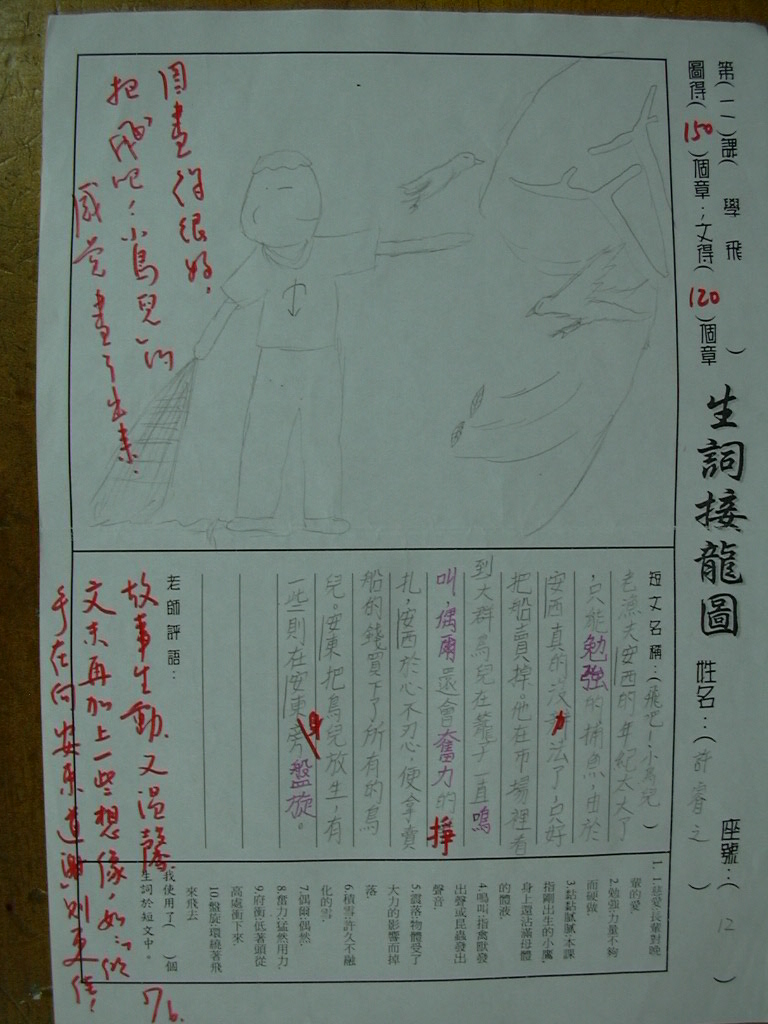 生詞接龍圖
姓名:(許睿之)
座號:(12)
第(一)課(學飛)
圖得(150)個章;文得(120)個章
圖畫得很好,
把「飛吧!小鳥兒」的
感覺畫了出來.
短文名稱:(飛吧!小鳥兒)
老漁夫安西的年紀太大了
,只能勉強的捕魚,由於
安西真的沒辦法了,只好
把船賣掉。他在市場裡看
到大群鳥兒在籠子一直鳴
叫,偶爾還會奮力的掙
扎,安西於心不忍心,便拿賣
船的錢買下了所有的鳥
兒。安東把鳥兒放生,有
一些則在安東身旁盤旋。
老師評語:
故事生動又溫馨.
文末再加上一些想像,如:…似
乎在向安東道謝」則更佳!
7/6.
1.慈愛:長輩對晚
輩的愛
2.勉強:力量不夠
而硬做
3.黏黏膩膩:本課
指剛出生的小鷹,
身上還沾滿母體
的體液
4.鳴叫:指禽獸發
出聲或昆蟲發出
聲音.
5.震落:物體受了
大力的影響而掉
落.
6.積雪:許久不融
化的雪.
7.偶爾:偶然.
8.奮力:猛然用力.
9.俯衝:低著頭從
高處衝下來
10.盤旋:環繞著飛
來飛去
我使用了( )個
生詞於短文中。